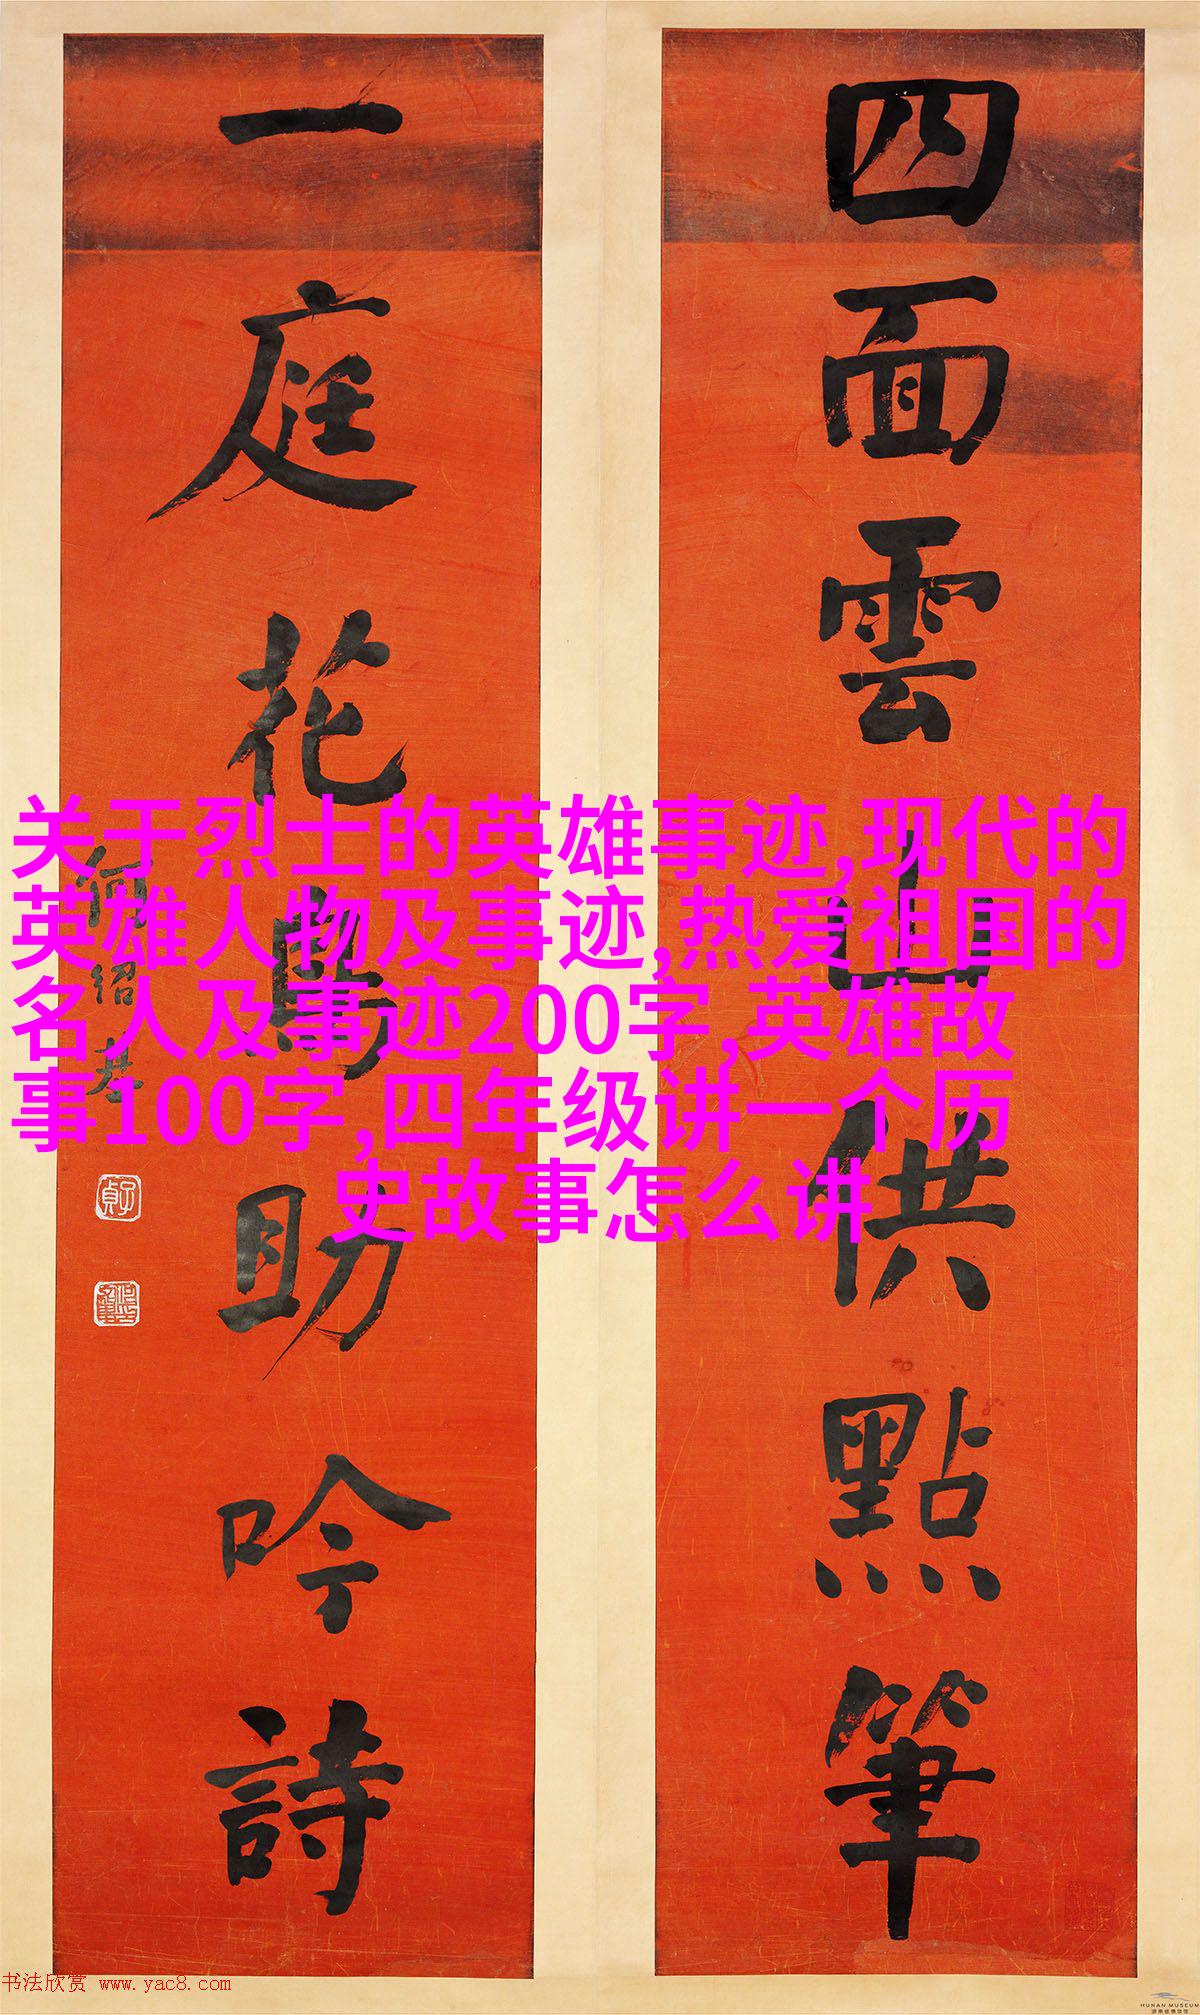 四面雲山供點筆
一庭花鳥助吟詩
何紹基
子貞
关于烈士的英雄事迹,现代的
英雄人物及事迹,热爱祖国的
名人及事迹200字,英雄故
事100字,四年级讲一个历
史故事怎么讲
书法欣赏 www.yac8.com
HUNAN MUSEUM